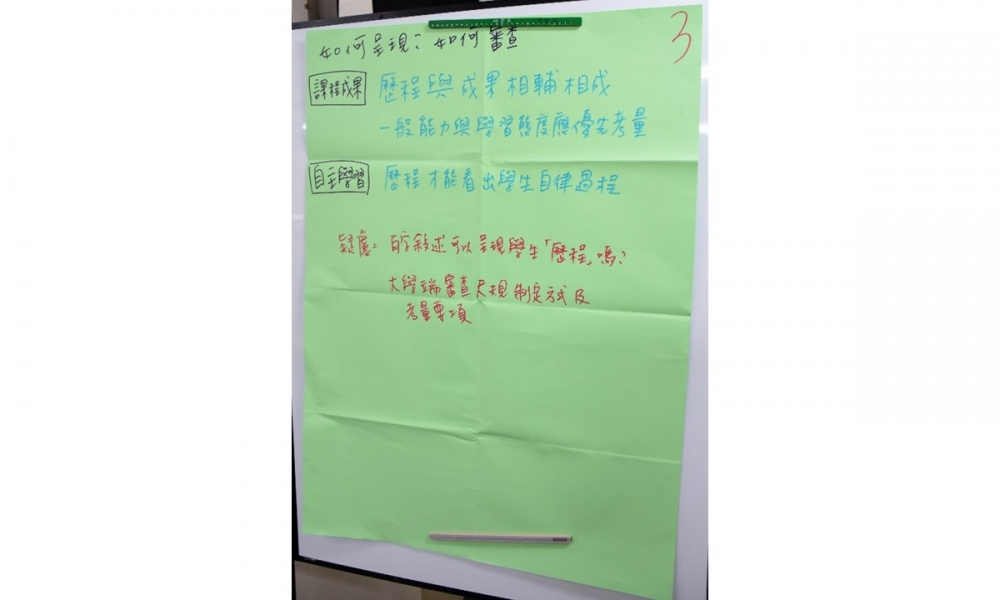 如何呈現？如何審查
3
課程成果 歷程與成果相輔相成
一般能力與學習態度應優先考量
自主學習 歷程才能看出學生自律過程
疑慮：百字敘述可以呈現學生「歷程」嗎？
大學端審查尺規制定方式及
考量要項